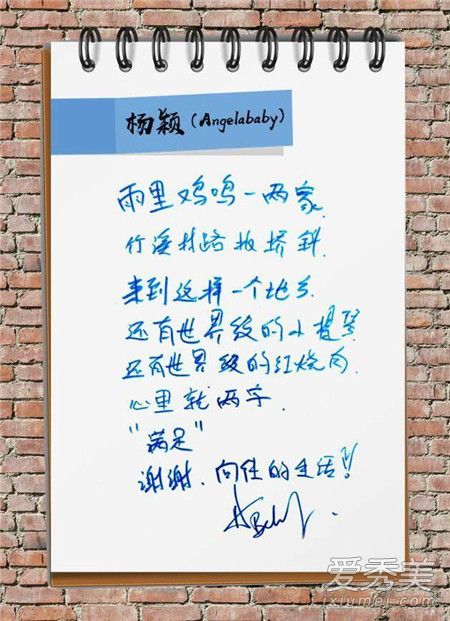 杨颖(Angelababy)
雨里鸡鸣一两家.
竹溪村路板桥斜.
来到这样一个地方.
还有世界级的小提琴
还有世界级的红烧肉.
心里就两字.
"满足"
谢谢.向往的生活!!
爱秀美
ixiumei.com